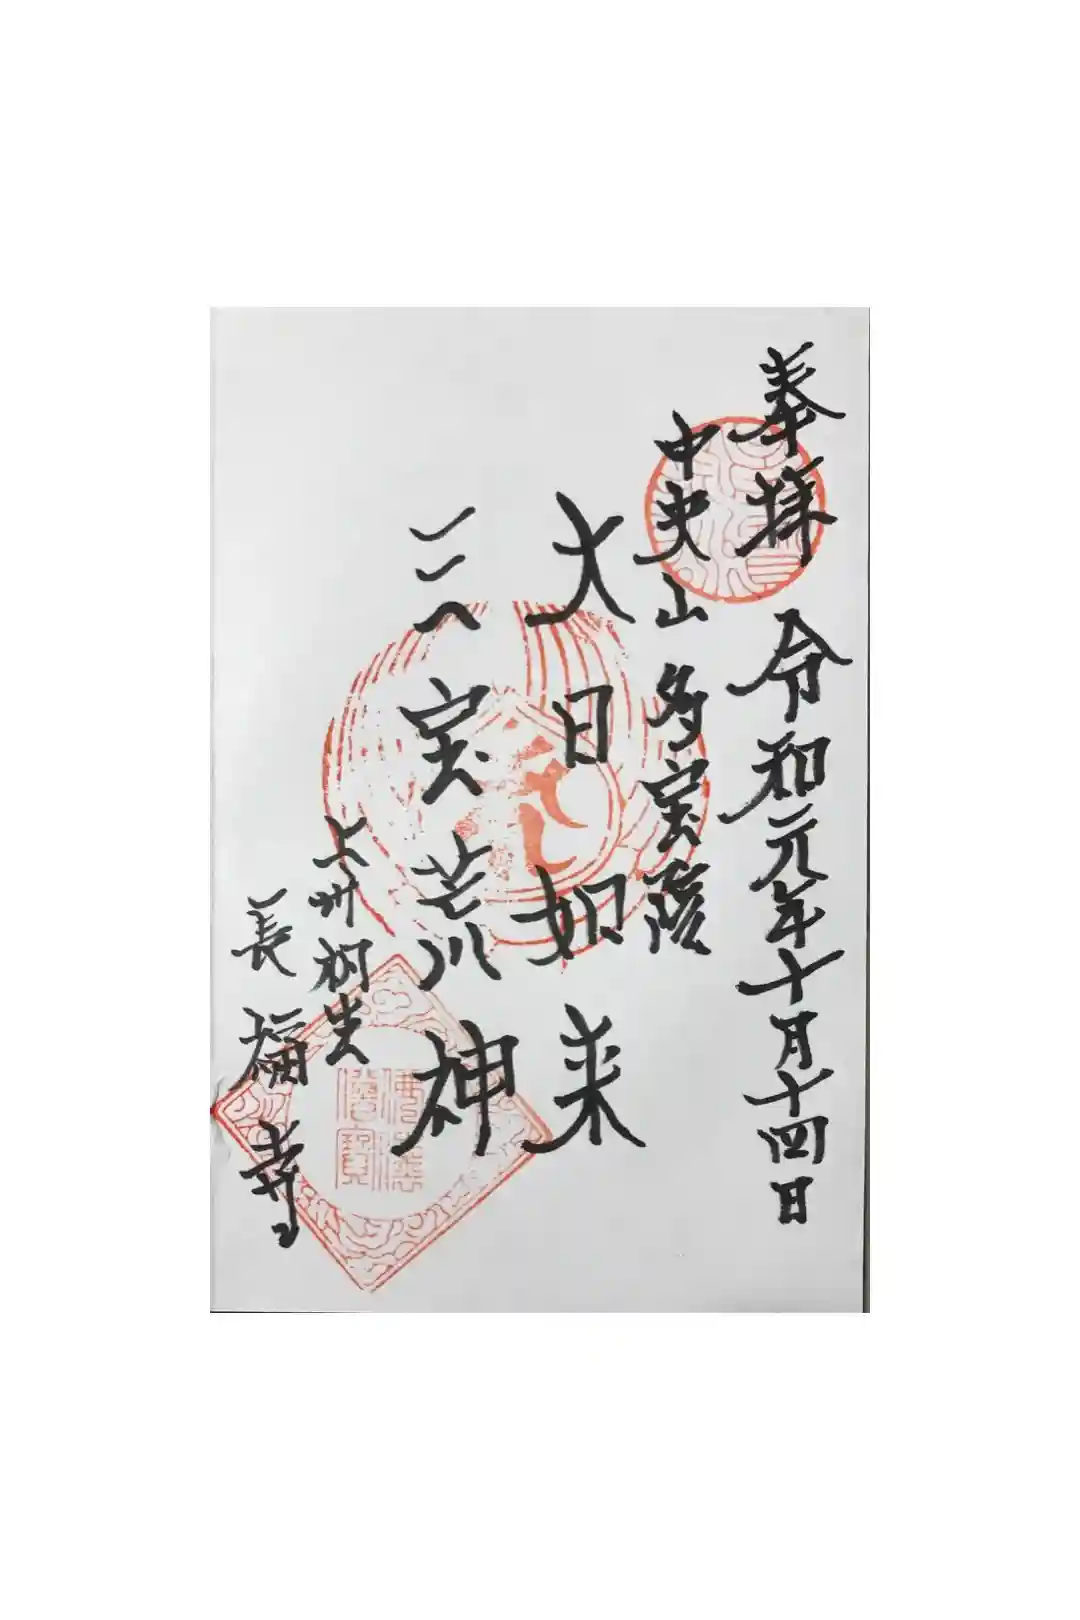 奉拝 令和元年十月十四日
中央山 多宝院
大日如来
三宝荒神
上州桐生
長福寺
佛法僧寳